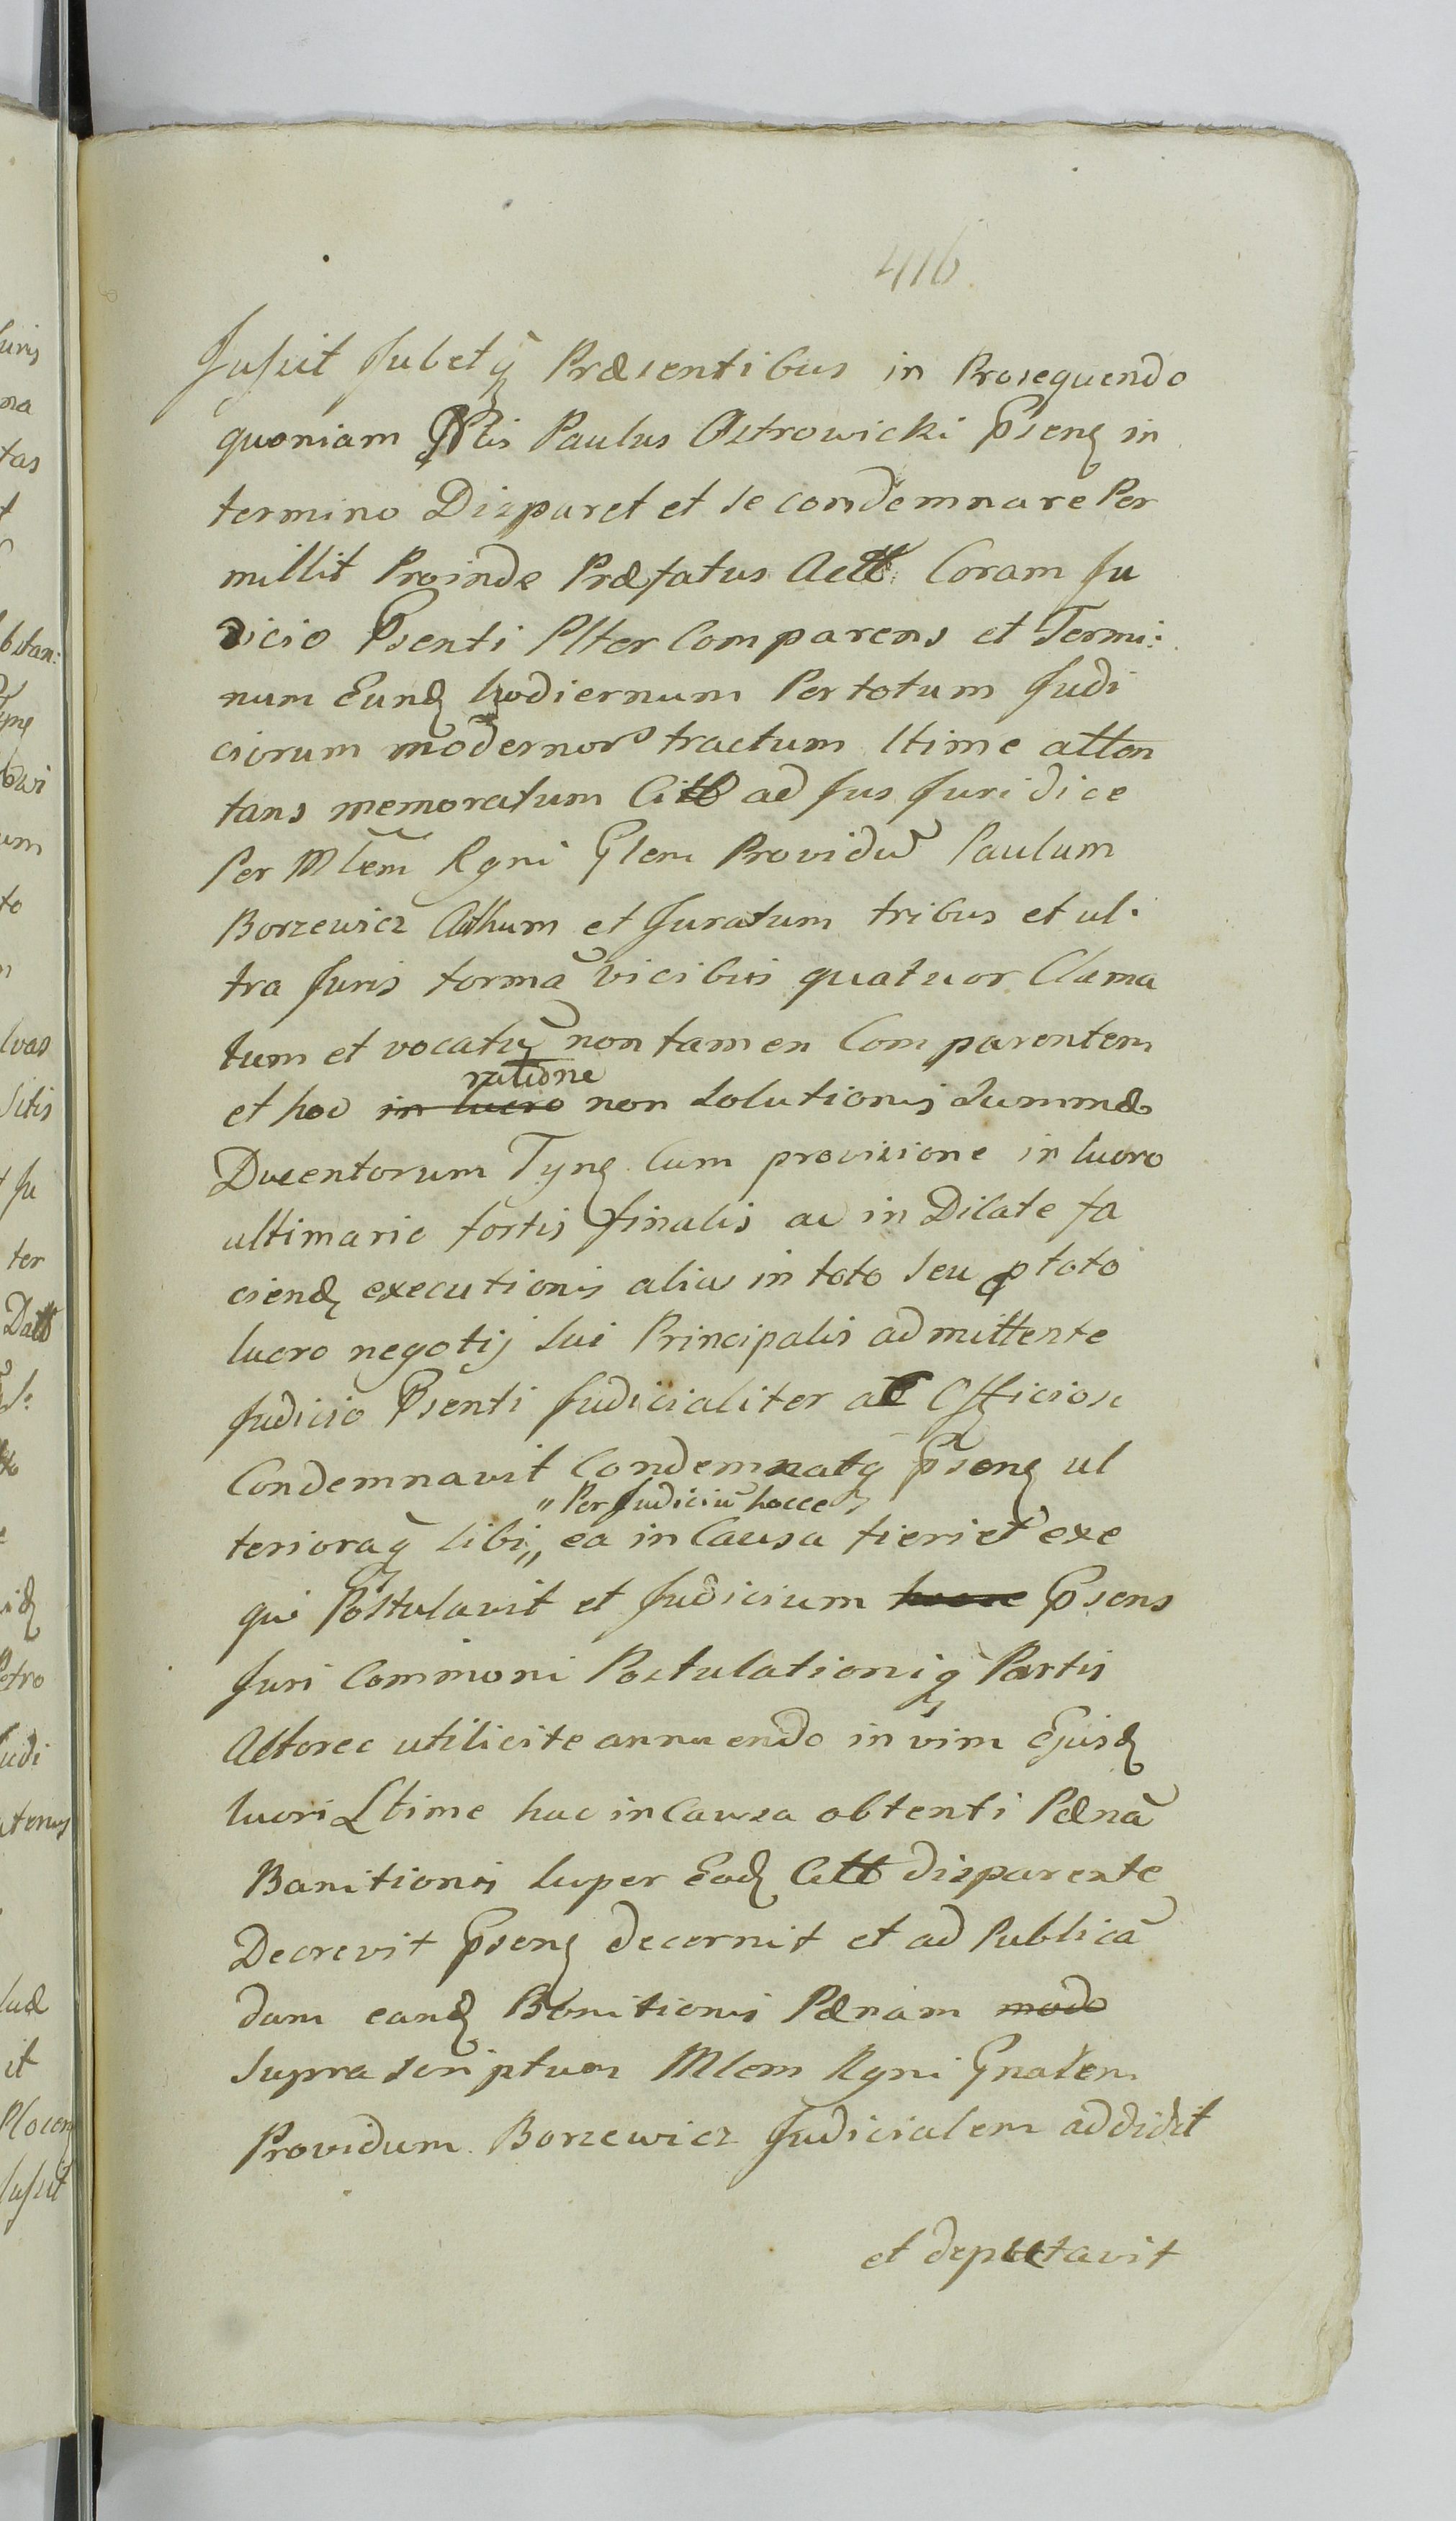 416
Jussit Jubetq̃ Præsentibus in Prosequendo
quoniam Paulus Ostrowicki Pseng in
termino Disparet et se condemnare Per
millit Proinde Præfatus Actt Coram Ju
dicio Psenti Plter Comparens et Termi:
num Eund hodiernum Per totum Judi
ciorum modernor tractum ltime atten
tans memoratum Citt ad Jus Juridice
Per Mlem Rgni Glem Providũ Paulum
Borzewicz Citthum et Juratum tribus et ul.
tra Juris formã vicibus quatuor Clama
tum et vocatũ non tamen Comparentem
ratione
et hoc in lucro non Solutionis Summæ
Ducentorum Tyng Cum provisione in lucro
ultimarie fortis finalis ac in Dilate fa
ciend executionis alias in toto Seu p toto
lucro negotij Sui Principalis admittente
Judicio Psenti Judicialiter ac Officiose
Condemnavit Condemnatq̃ Pseng ul
„Per Judiciũ hocce
terioraq̃ Sibi „ ea in Causa fieri et exe
qui Postulavit et Judicium hocce Psens
Juri Commoni Postulationiq̃ Partis
Actorec utilicite annuendo in vim Ejusd
lucri Ltime hac in Causa obtenti Pænã
Banitionis Super Eod Citt disparente
Decrevit Pseng decernit et ad Publicã
dam eand Banitionis Pænam modo
Supra scriptum Mlem Rgni Gnalem
Providum Borzewicz Judicialem addidit
et deputavit